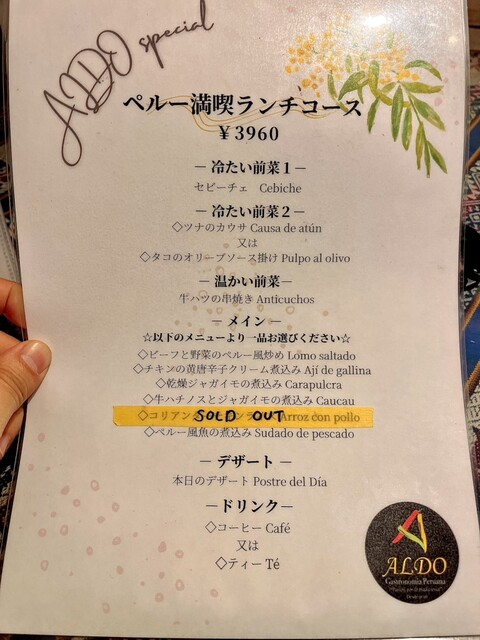 ALDO special
ペルー満喫ランチコース
￥3960
― 冷たい前菜１―
セビーチェ Cebiche
― 冷たい前菜２―
◇ツナのカウサ Causa de atún
又は
◇タコのオリーブソース掛け Pulpo al olivo
― 温かい前菜―
牛ハツの串焼き Anticuchos
― メイン ―
☆以下のメニューより一品お選びください☆
◇ビーフと野菜のペルー風炒め Lomo saltado
◇チキンの黄唐辛子クリーム煮込み Ají de gallina
◇乾燥ジャガイモの煮込み Carapulcra
◇牛ハチノスとジャガイモの煮込み Caucau
◇コリアン Arroz con pollo
SOLD OUT
◇ペルー風魚の煮込み Sudado de pescado
― デザート ―
本日のデザート Postre del Día
―ドリンク―
◇コーヒー Café
又は
◇ティー Té
ALDO
Gastronomía Peruana